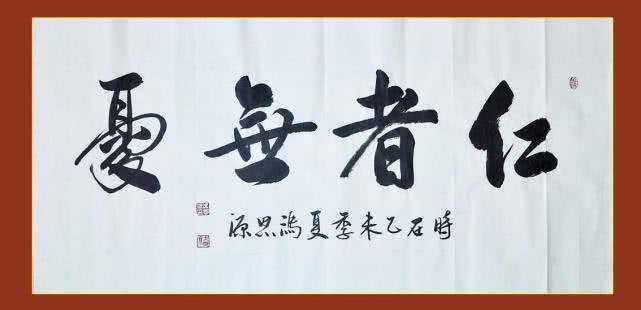 仁者無憂
時在乙未季夏馮思源